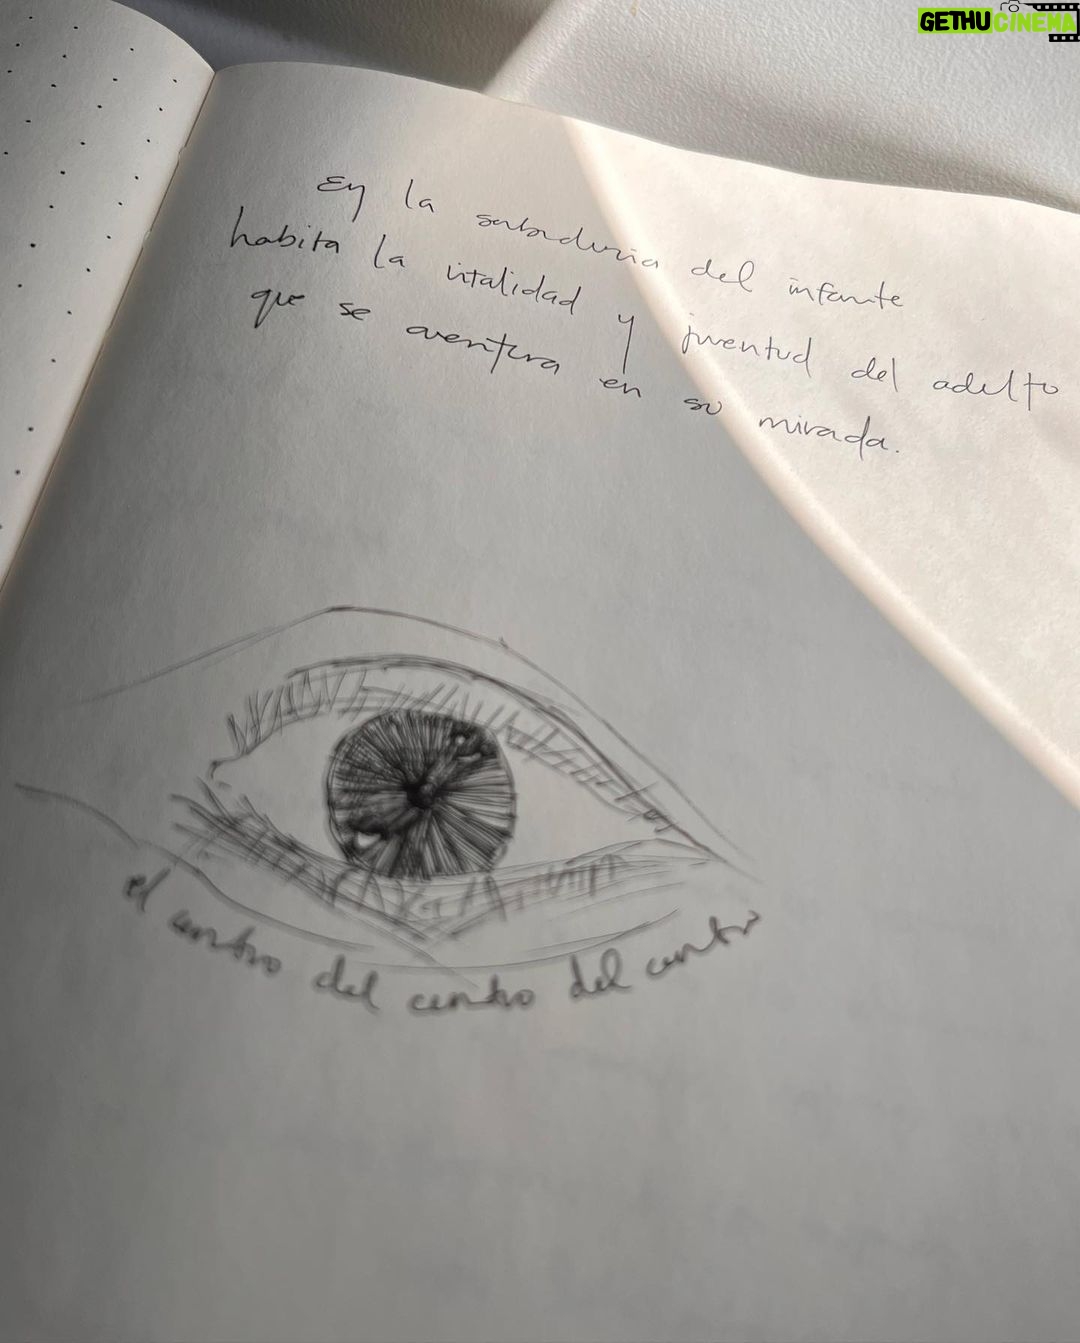 GETHU CINEMA
En la sabiduria del infante
habita la vitalidad y juventud del adulto
que se aventura en su mirada.
el centro del centro del centro